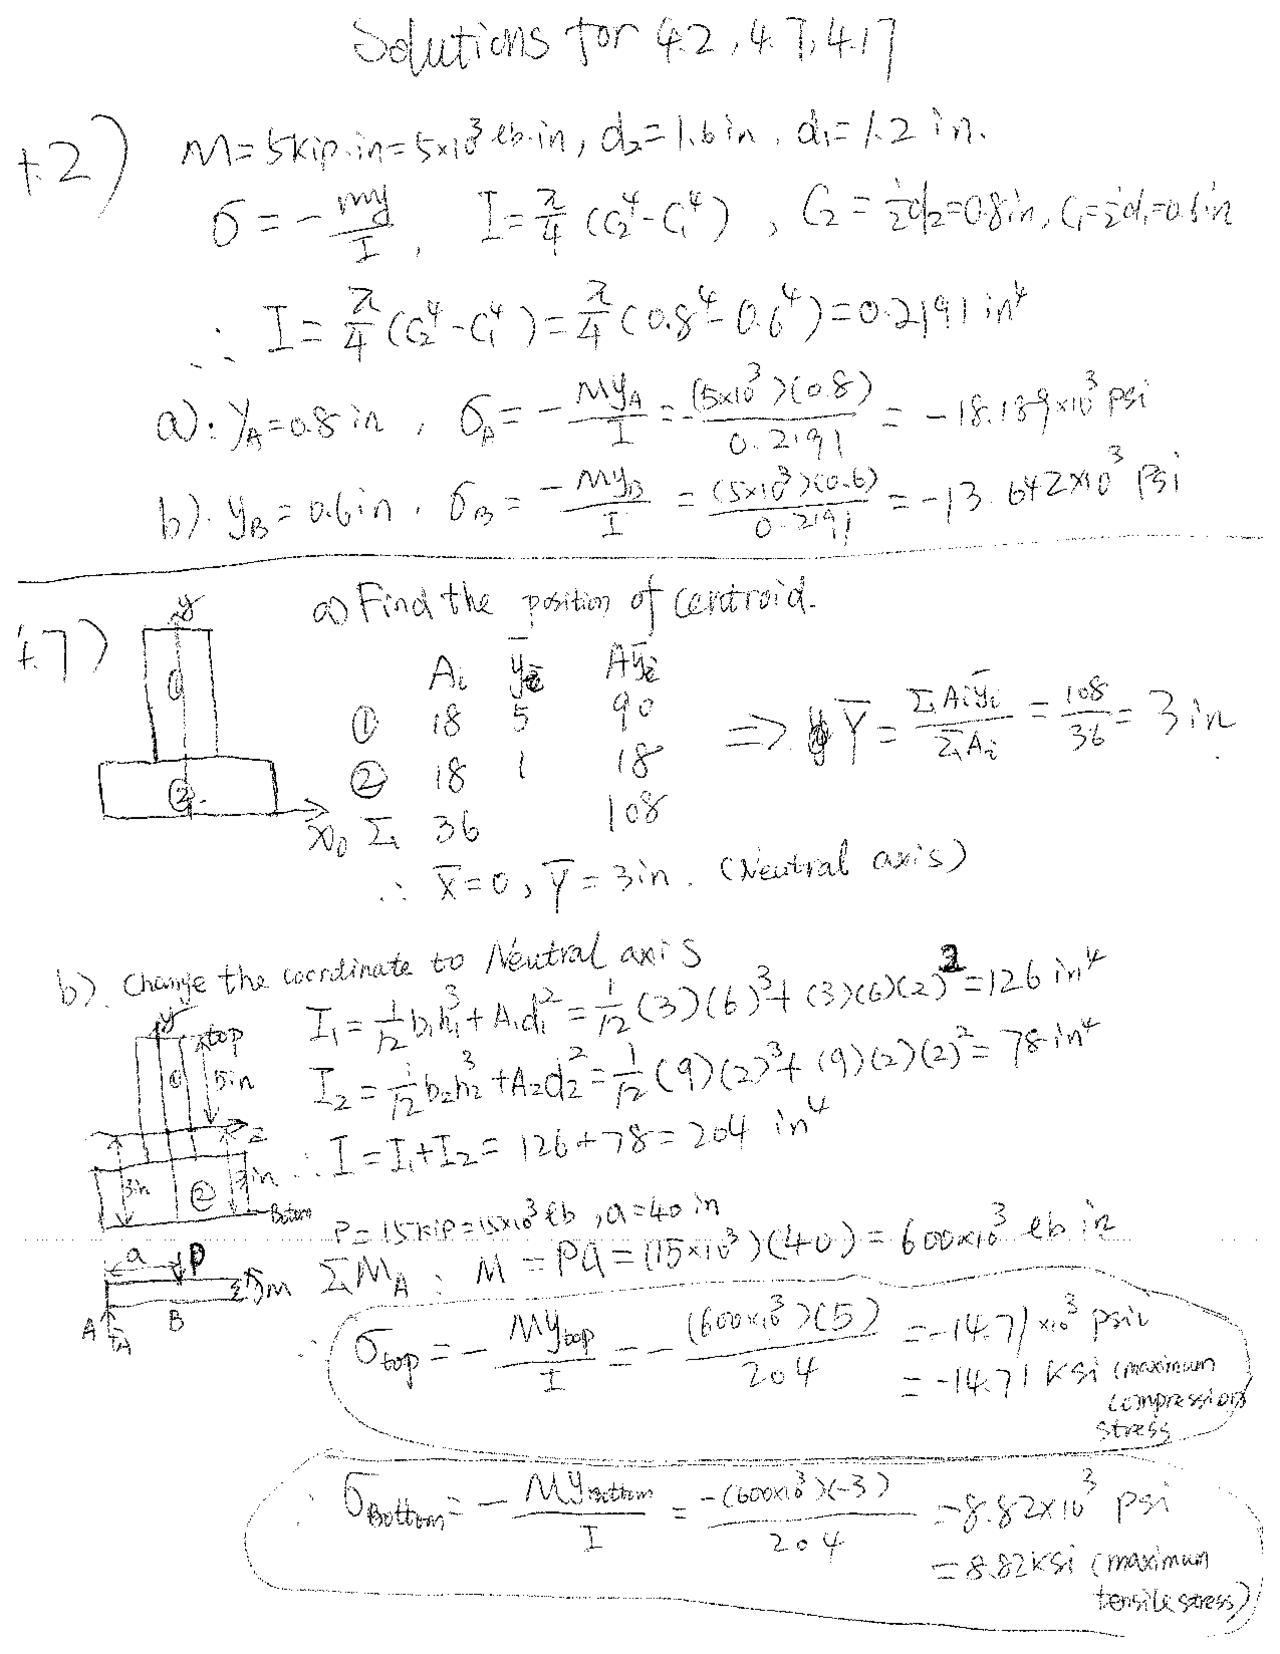 Solutions for 4.2, 4.7, 4.17
4.2) M=5kip.in=5x10³ lb.in, d₂=1.6in, d₁=1.2in.
σ=-My/I, I=π/4(C₂⁴-C₁⁴), C₂=½d₂=0.8in, C₁=½d₁=0.6in
∴ I=π/4(C₂⁴-C₁⁴)=π/4(0.8⁴-0.6⁴)=0.2191in⁴
a): y_A=0.8in, σ_A=-My_A/I=-(5x10³)(0.8)/0.2191=-18.189x10³ psi
b). y_B=0.6in. σ_B=-My_B/I=(5x10³)(0.6)/0.2191=-13.642x10³ psi
4.7) a) Find the position of Centroid.
y
①
②
x₀
Aᵢ ȳᵢ Aȳᵢ
① 18 5 90
② 18 1 18
Σ 36 108
⇒ Ȳ=ΣAᵢȳᵢ/ΣAᵢ=108/36=3in.
∴ X̄=0, Ȳ=3in. (Neutral axis)
b). Change the coordinate to Neutral axis
I₁=1/12b₁h₁³+A₁d₁²=1/12(3)(6)³+(3)(6)(2)²=126in⁴
I₂=1/12b₂h₂³+A₂d₂²=1/12(9)(2)³+(9)(2)(2)²=78in⁴
∴ I=I₁+I₂=126+78=204 in⁴
y
top
①
5in
z
3in
②
3in
Bottom
P=15kip=15x10³ lb, a=40in
ΣM_A: M=Pa=(15x10³)(40)=600x10³ lb in
a
P
M
A
B
∴ σtop=-Mytop/I=-(600x10³)(5)/204=-14.71x10³ psi
=-14.71 ksi (maximum
compression
stress
∴ σBottom=-MyBottom/I=-(600x10³)(-3)/204=8.82x10³ psi
=8.82ksi (maximum
tensile stress)